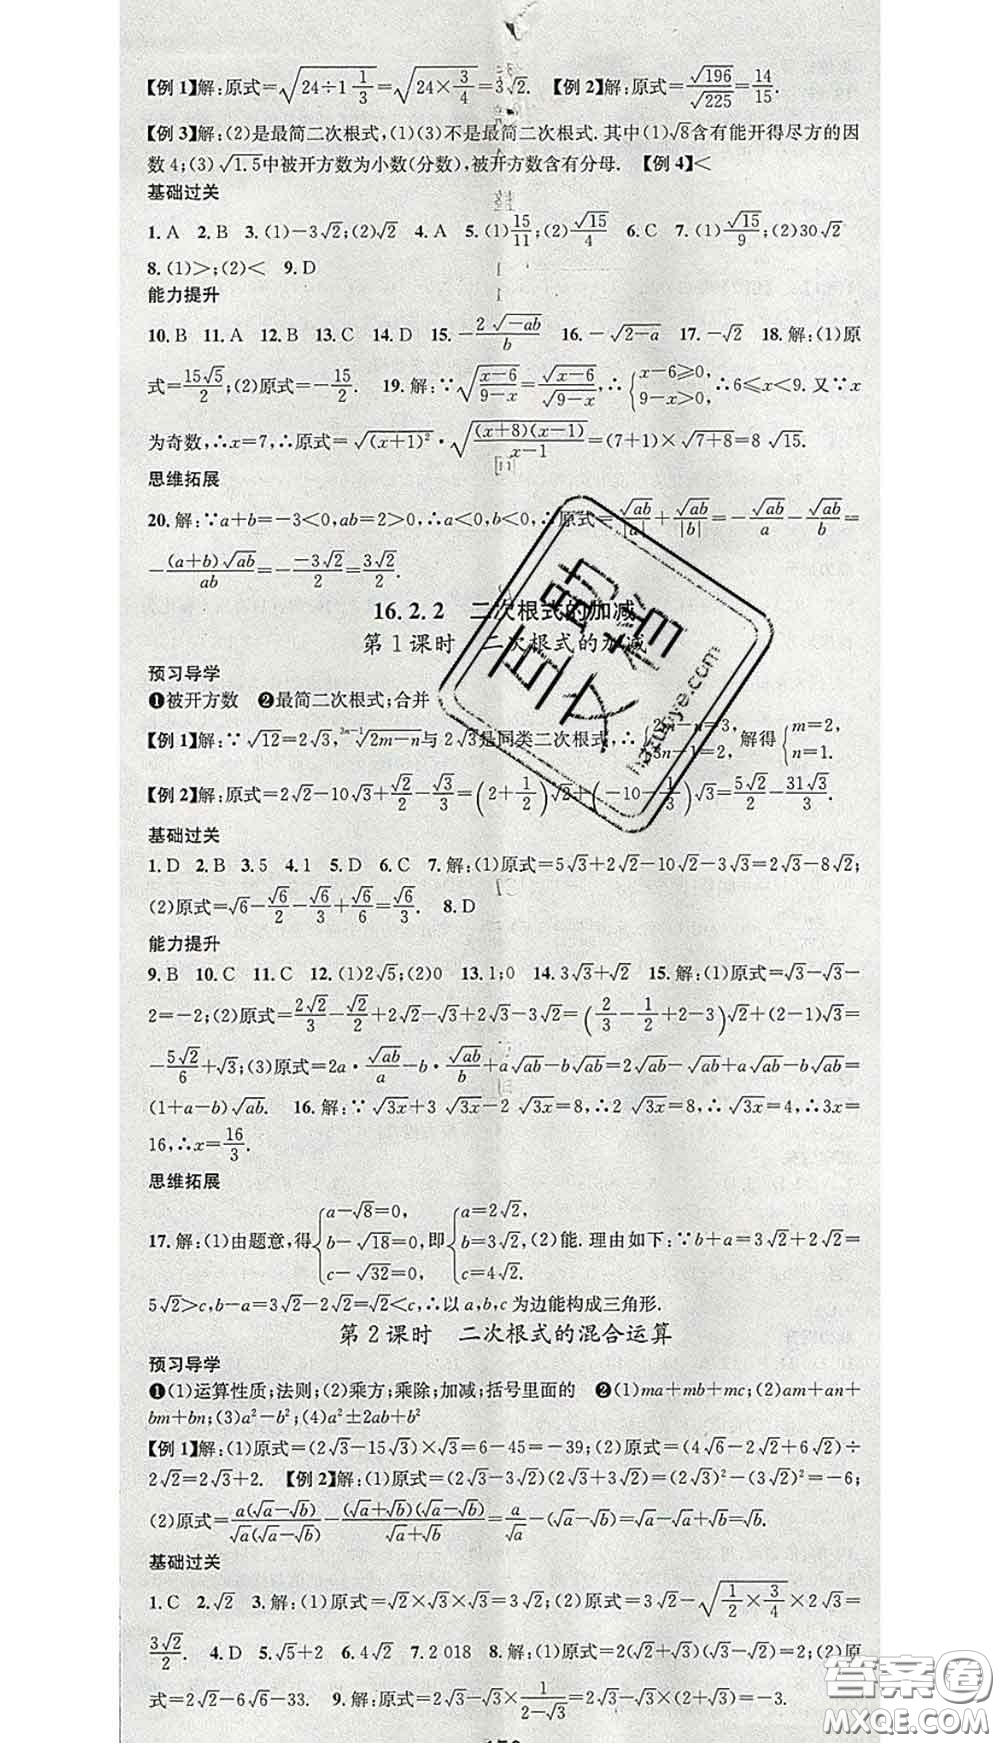 【例 1】解:原式=√(24÷1 1/3)=√(24×3/4)=3√2. 【例 2】解:原式=√196/√225=14/15.
【例 3】解:(2)是最简二次根式,(1)(3)不是最简二次根式.其中(1)√8含有能开得尽方的因
数 4;(3)√1.5中被开方数为小数(分数),被开方数含有分母. 【例 4】<
基础过关
1. A 2. B 3. (1)-3√2;(2)√2 4. A 5. (1)15/11;(2)√15/4 6. C 7. (1)√15/9;(2)30√2
8. (1)>;(2)< 9. D
能力提升
10. B 11. A 12. B 13. C 14. D 15. -2√(-ab)/b 16. -√(2-a) 17. -√2 18. 解:(1)原
式=15√5/2;(2)原式=-15/2. 19. 解:∵√((x-6)/(9-x))=√(x-6)/√(9-x),∴{x-6≥0, 9-x>0,∴6≤x<9. 又∵x
为奇数,∴x=7,∴原式=√((x+1)²)·√((x+8)(x-1)/(x-1))=(7+1)×√(7+8)=8√15.
思维拓展
20. 解:∵a+b=-3<0,ab=2>0,∴a<0,b<0,∴原式=√ab/|a|+√ab/|b|=-√ab/a-√ab/b=
-(a+b)√ab/ab=-(-3√2)/2=3√2/2.
16.2.2 二次根式的加减
第 1 课时 二次根式的加减
预习导学
❶被开方数 ❷最简二次根式;合并
【例 1】解:∵√12=2√3, ²ᵐ⁻¹√(2m-n)与 2√3是同类二次根式,∴ 解得{m=2, n=1.
【例 2】解:原式=2√2-10√3+√2/2-√3/3=(2+1/2)√2+(-10-1/3)√3=5√2/2-31√3/3.
基础过关
1. D 2. B 3. 5 4. 1 5. D 6. C 7. 解:(1)原式=5√3+2√2-10√2-3√3=2√3-8√2;
(2)原式=√6-√6/2-√6/3+√6/6=√6/3. 8. D
能力提升
9. B 10. C 11. C 12. (1)2√5;(2)0 13. 1;0 14. 3√3+√2 15. 解:(1)原式=√3-√3-
2=-2;(2)原式=2√2/3-√2/2+2√2-√3+2√3-3√2=(2/3-1/2+2-3)√2+(2-1)√3=
-5√2/6+√3;(3)原式=2a·√ab/a-b·√ab/b+a√ab-b√ab=2√ab-√ab+a√ab-b√ab=
(1+a-b)√ab. 16. 解:∵√3x+3√3x-2√3x=8,∴2√3x=8,∴√3x=4,∴3x=
16,∴x=16/3.
思维拓展
17. 解:(1)由题意,得{a-√8=0, b-√18=0, c-√32=0,即{a=2√2, b=3√2, c=4√2.(2)能. 理由如下:∵b+a=3√2+2√2=
5√2>c,b-a=3√2-2√2=√2<c,∴以 a,b,c 为边能构成三角形.
第 2 课时 二次根式的混合运算
预习导学
❶(1)运算性质;法则;(2)乘方;乘除;加减;括号里面的 ❷(1)ma+mb+mc;(2)am+an+
bm+bn;(3)a²-b²;(4)a²±2ab+b²
【例 1】解:(1)原式=(2√3-15√3)×√3=6-45=-39;(2)原式=(4√6-2√2+6√2)÷
2√2=2√3+2. 【例 2】解:(1)原式=(2√3-3√2)(2√3+3√2)=(2√3)²-(3√2)²=-6;
(2)原式=a(√a-√b)/(√a(√a-√b))-(√a+√b)(√a-√b)/(√a+√b)=a/√a-(√a-√b)=√a-√a+√b=√b.
基础过关
1. C 2. √2 3. 解:(1)原式=√2×√3×√3=3√2;(2)原式=3√2-√(1/2×3/4)×2√3=
3√2/2. 4. D 5. √5+2 6. 4√2 7. 2 018 8. 解:(1)原式=2(√2+√3)(√3-√2)=2;(2)原
式=2√2-6√6-33. 9. 解:原式=2√3-√3×1/(2-√3)=2√3-√3×(2+√3)=-3.
互助文档
hazuoye.com
答案圈
MXQE.COM